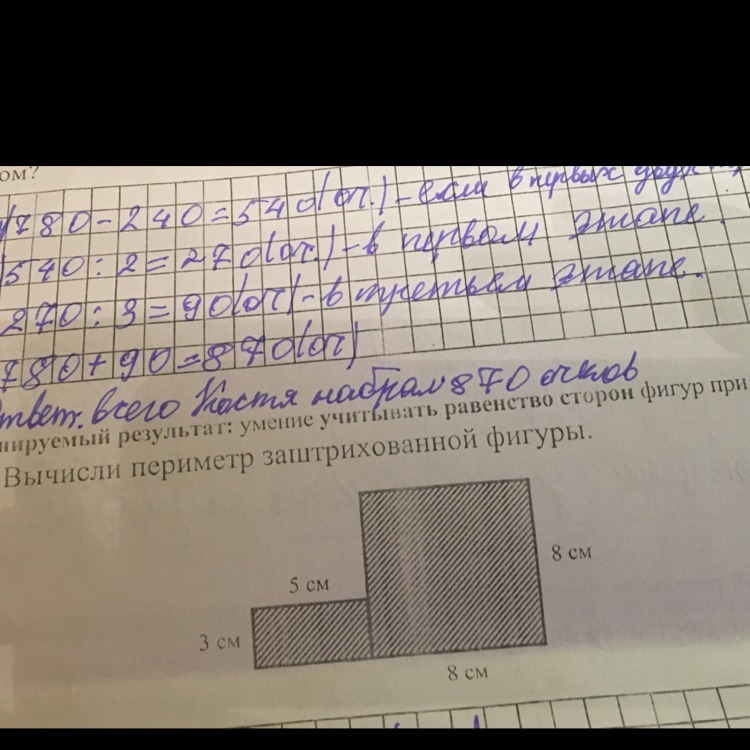 ом?
780-240=540(оч.)-если в первых двух
540:2=270(оч.)-в первом этапе.
270:3=90(оч)-в третьем этапе.
780+90=870(оч)
твет: всего Костя набрал 870 очков
нируемый результат: умение учитывать равенство сторон фигур при
Вычисли периметр заштрихованной фигуры.
8 см
5 см
3 см
8 см